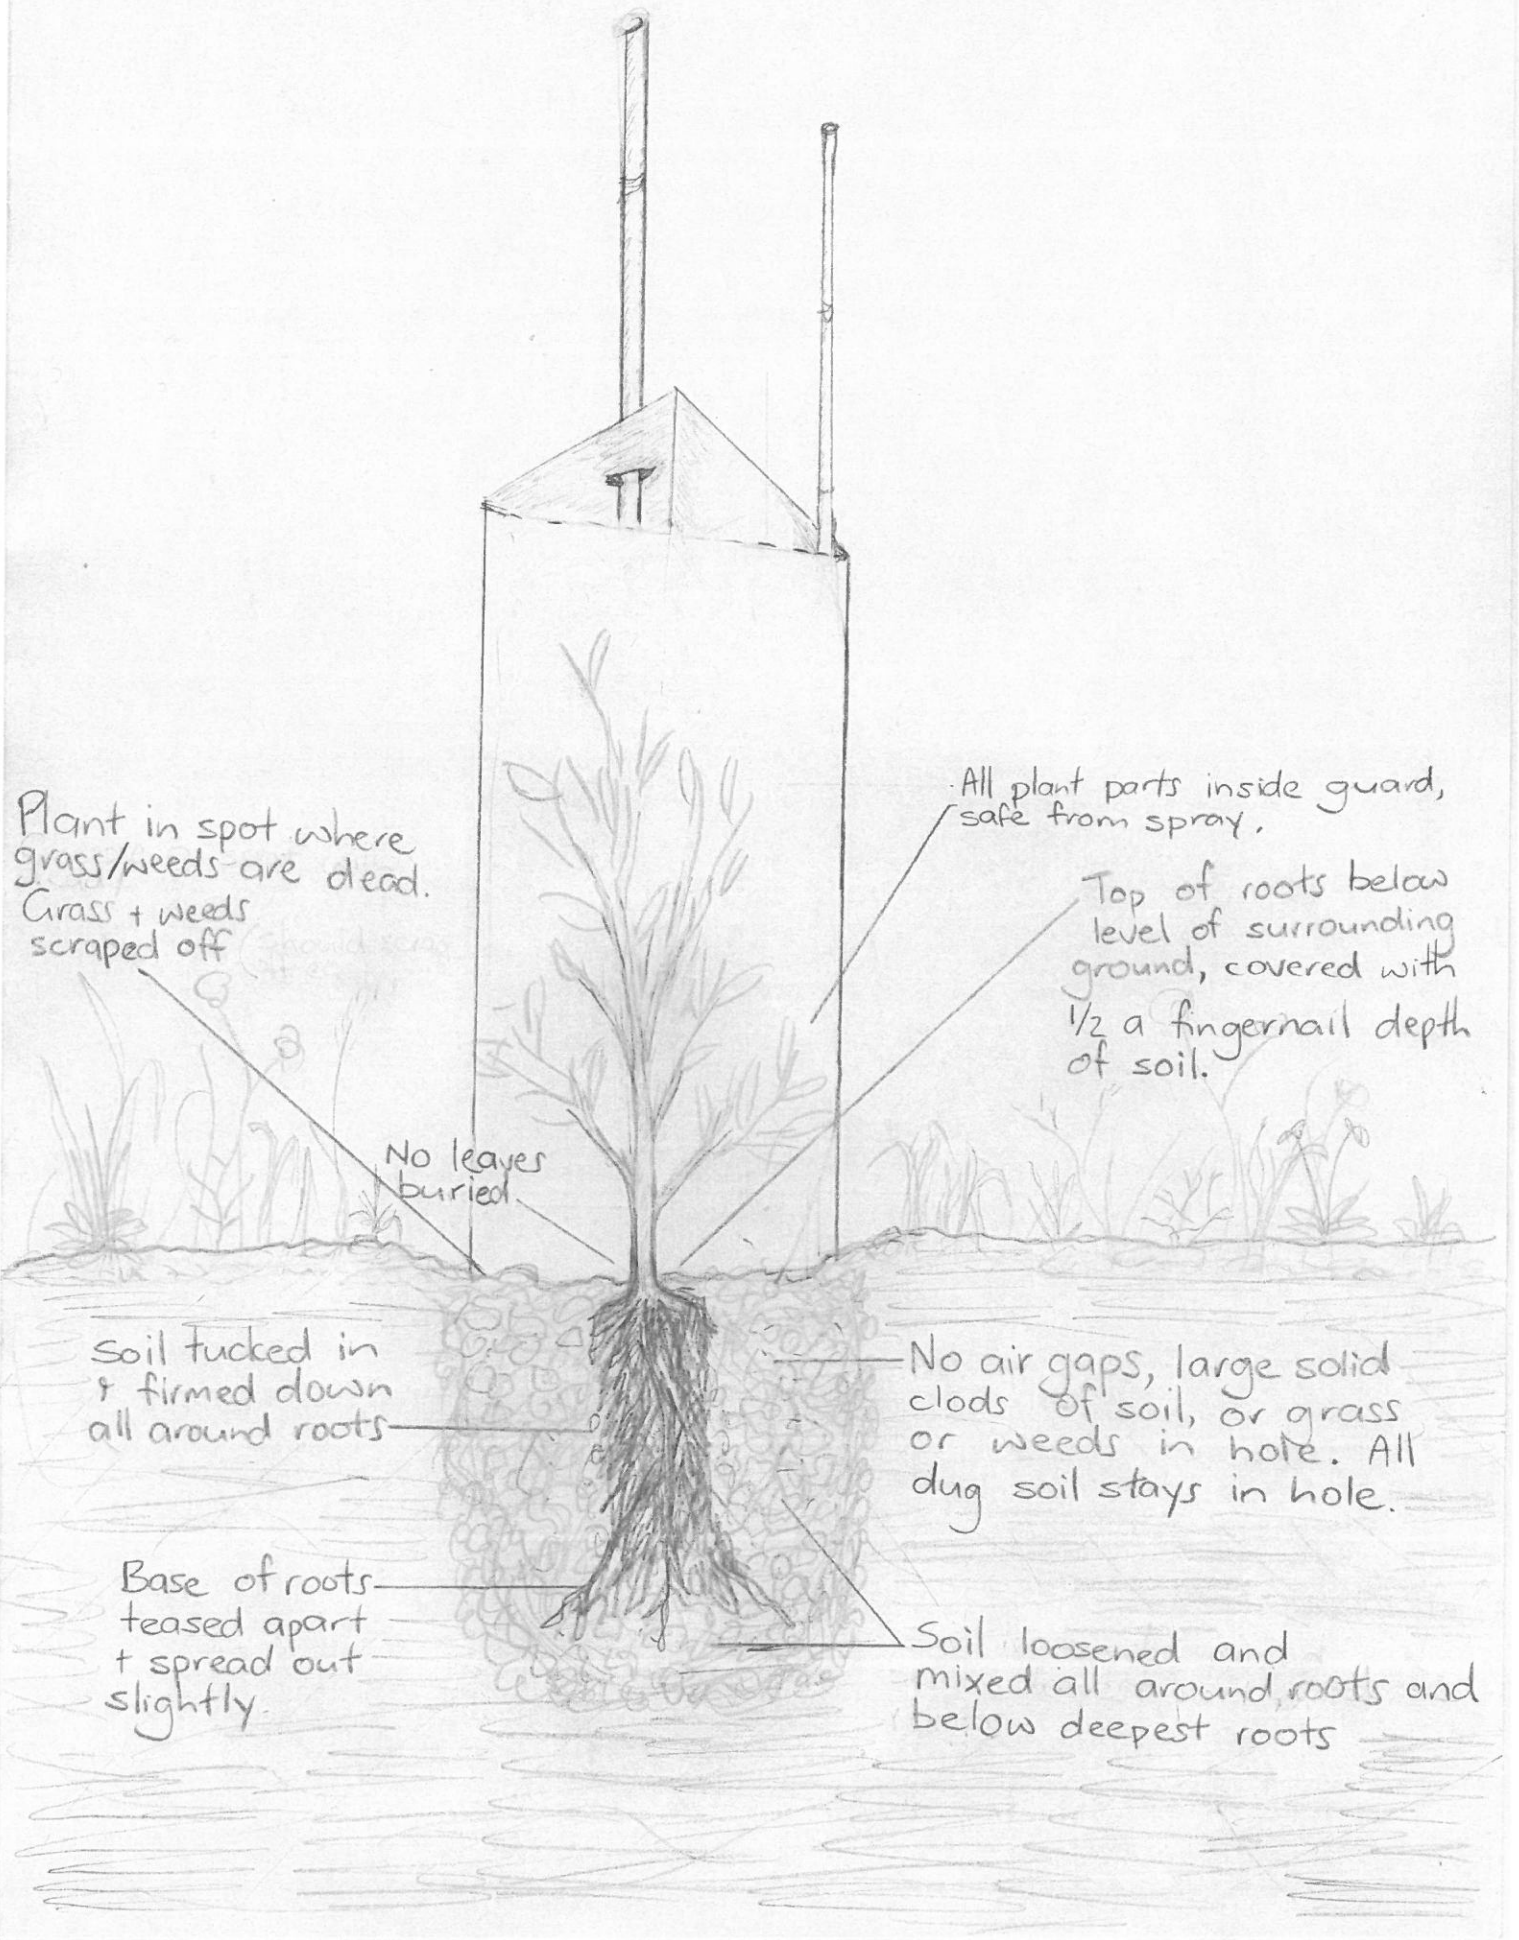 Plant in spot where
grass/weeds are dead.
Grass + weeds
scraped off
All plant parts inside guard,
safe from spray.
Top of roots below
level of surrounding
ground, covered with
1/2 a fingernail depth
of soil.
No leaves
buried.
Soil tucked in
+ firmed down
all around roots
No air gaps, large solid
clods of soil, or grass
or weeds in hole. All
dug soil stays in hole.
Base of roots
teased apart
+ spread out
slightly.
Soil loosened and
mixed all around roots and
below deepest roots